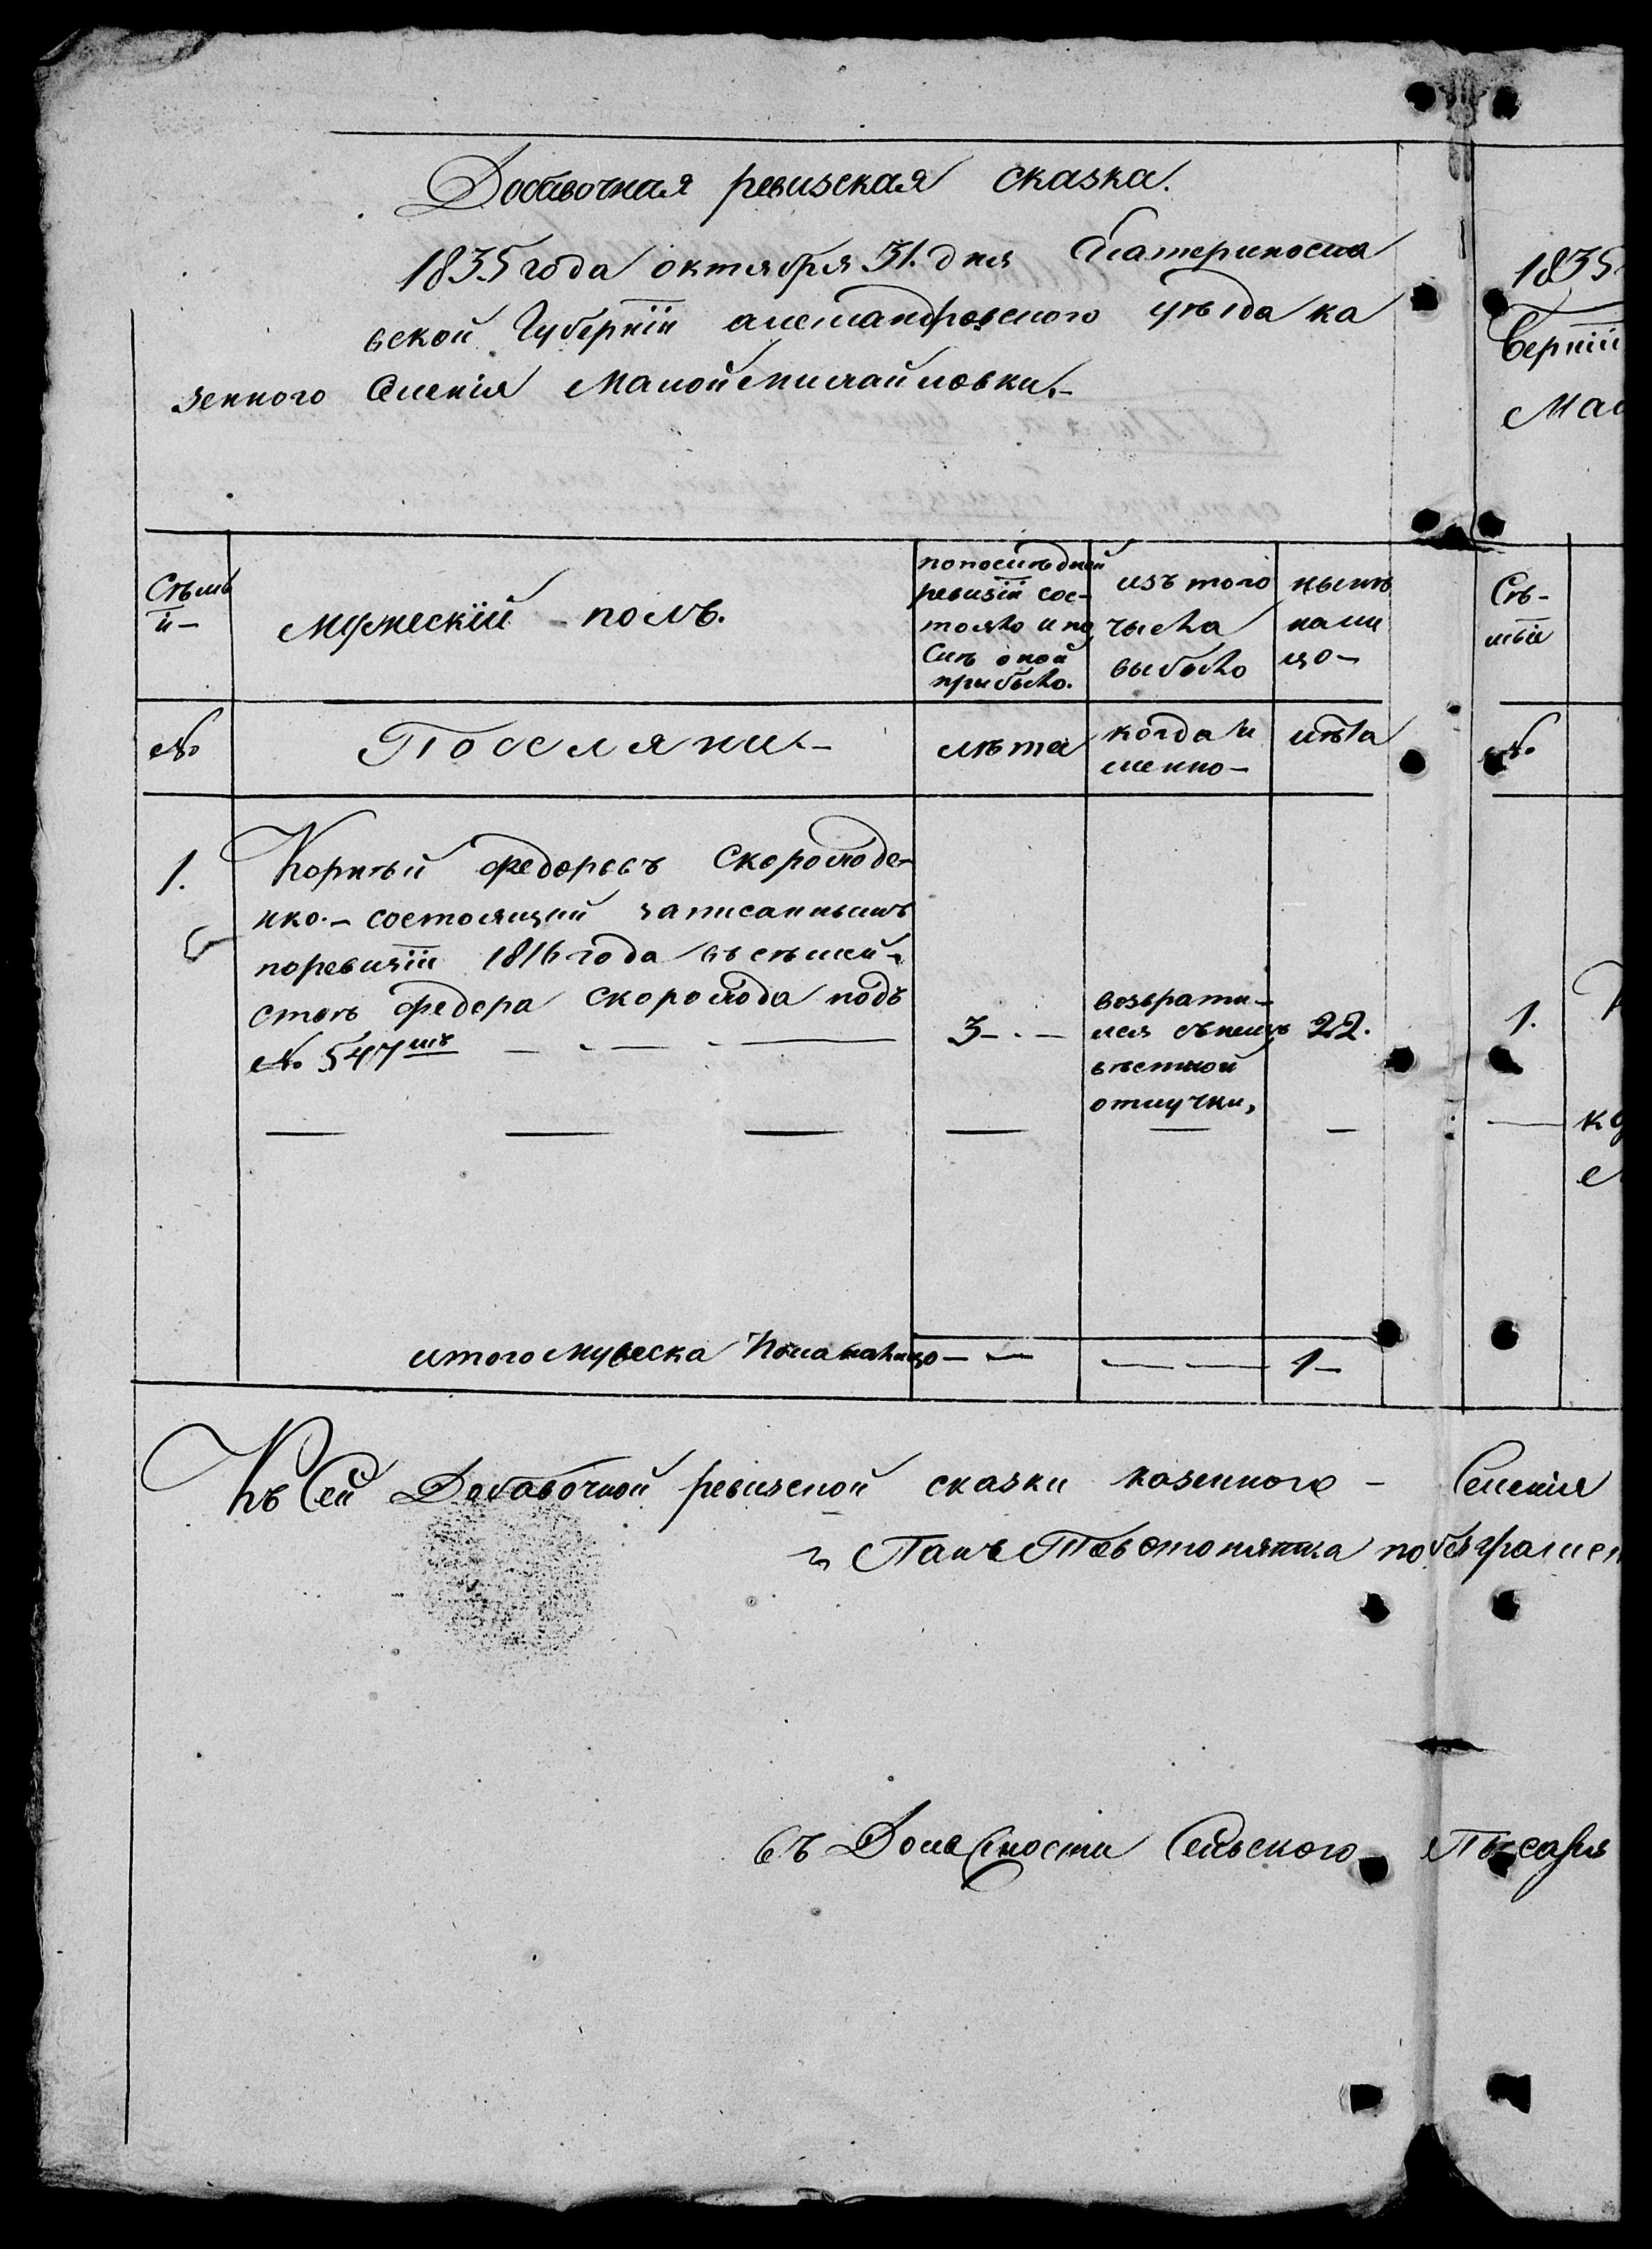 Добавочная ревизская сказка.
1835 года октября 31. дня Екатериносла
вской Губерніи александровского уѣзда ка
зенного Селенія Малой михайловки.-
Сѣмь
и-
мужескій полъ.
попослѣдней
ревизіи сос-
тояло и по
слѣ оной
прибыло.
изъ того
числа
выбыло
нынѣ
нали
цо-
№
Поселяни.-
лѣта
когда и
менно-
лѣта
1.
Корнѣй федоровъ Скороходе-
нко.- состоящій записаннымъ
поревизіи 1816 года въ сѣмей-
ствѣ федора скорохода подъ
№ 547мъ
3-.-
возврати-
лся съ неиз
вѣстной
отлучки,
22.
итого мужеска пола налицо
1-
Къ Сей Добавочной ревизской сказки казенного - Селенія
по безграмот
въ Должности Сельского Писаря
1835
берніи
Мал
Сѣ-
мьи
№
1.